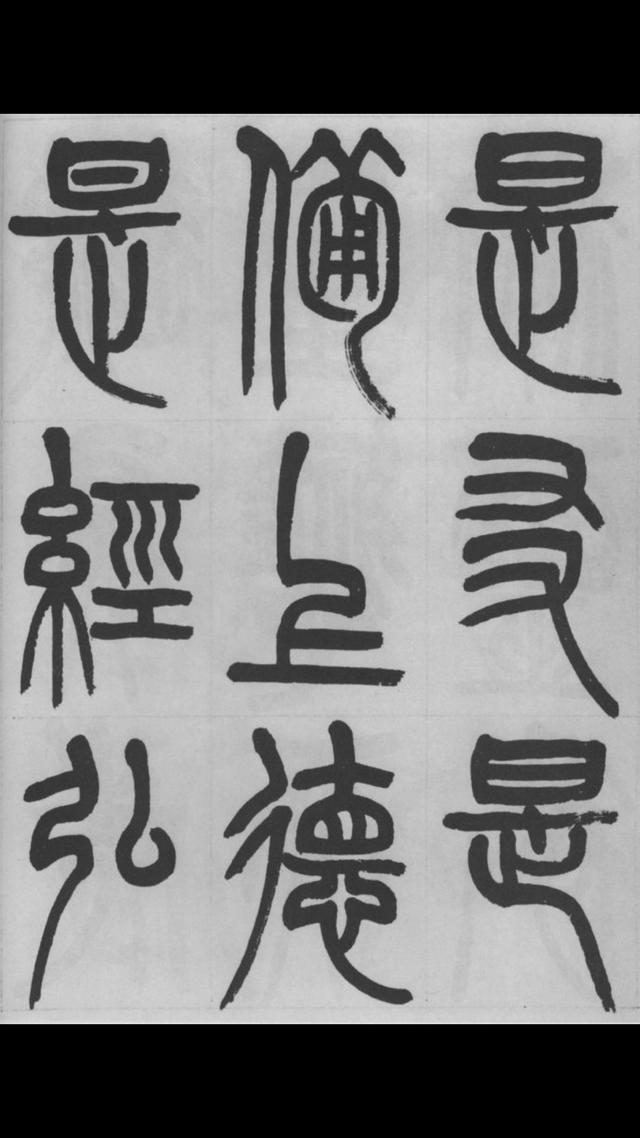 是友是
備上德
是經弘